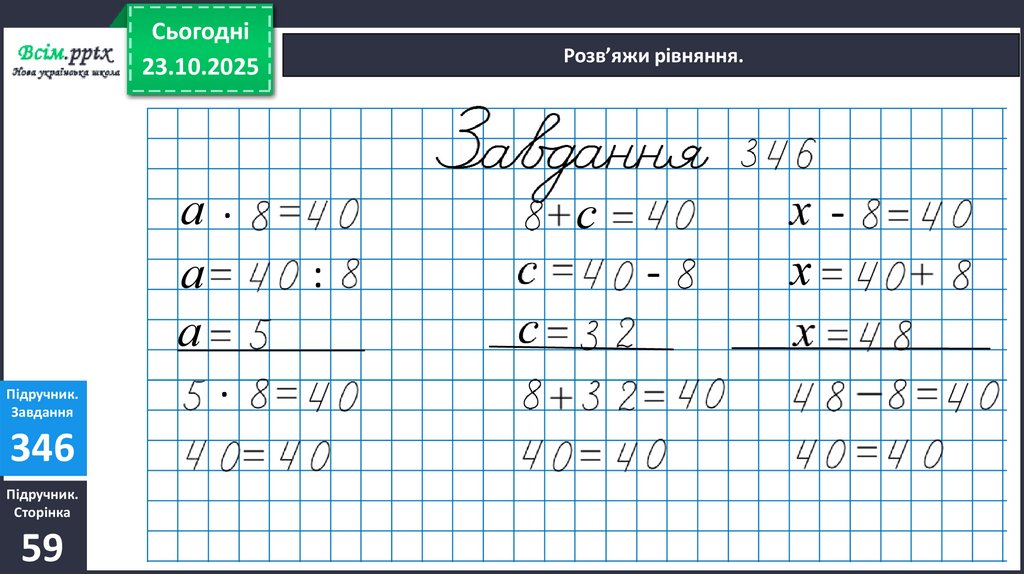 Всім.pptx
Нова українська школа
Сьогодні
23.10.2025
Розв’яжи рівняння.
Завдання 346
а · 8=40
а= 40 : 8
а= 5
5 · 8=40
40= 40
8+с =40
с =40 - 8
с=32
8+32=40
40= 40
х - 8=40
х=40+ 8
х=48
48−8=40
40=40
Підручник.
Завдання
346
Підручник.
Сторінка
59